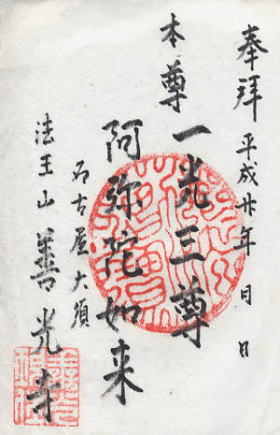 奉拝 平成廿年 月 日
本尊 一光三尊
阿弥陀如来
名古屋大須
法王山 善光寺